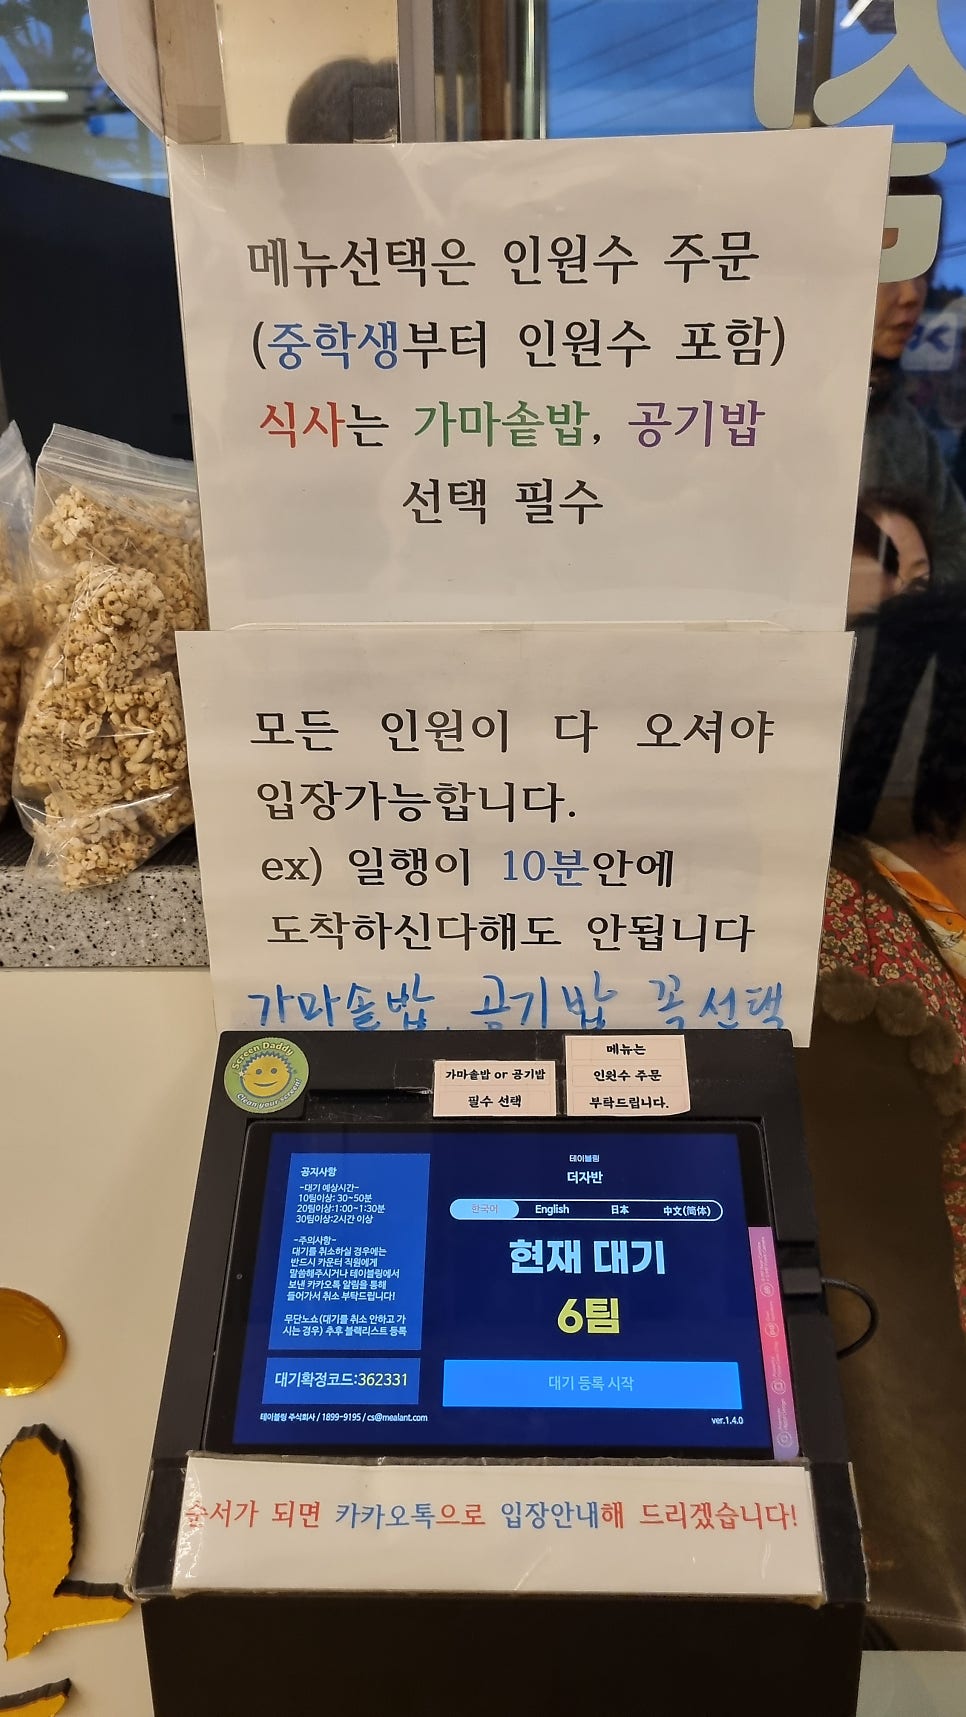 메뉴선택은 인원수 주문
(중학생부터 인원수 포함)
식사는 가마솥밥, 공기밥
선택 필수
모든 인원이 다 오셔야
입장가능합니다.
ex) 일행이 10분안에
도착하신다해도 안됩니다
가마솥밥, 공기밥 꼭 선택
Screen Daddy
Clean your screen!
가마솥밥 or 공기밥
필수 선택
메뉴는
인원수 주문
부탁드립니다.
공지사항
-대기 예상시간-
10팀이상: 30~50분
20팀이상:1:00~1:30분
30팀이상:2시간 이상
-주의사항-
대기를 취소하실 경우에는
반드시 카운터 직원에게
말씀해주시거나 테이블링에서
보낸 카카오톡 알림을 통해
들어가서 취소 부탁드립니다!
무단노쇼(대기를 취소 안하고 가
시는 경우) 추후 블랙리스트 등록
대기확정코드:362331
테이블링 주식회사 / 1899-9195 / cs@mealant.com
테이블링
더자반
한국어 English 日本 中文(简体)
현재 대기
6팀
대기 등록 시작
ver.1.4.0
순서가 되면 카카오톡으로 입장안내해 드리겠습니다!